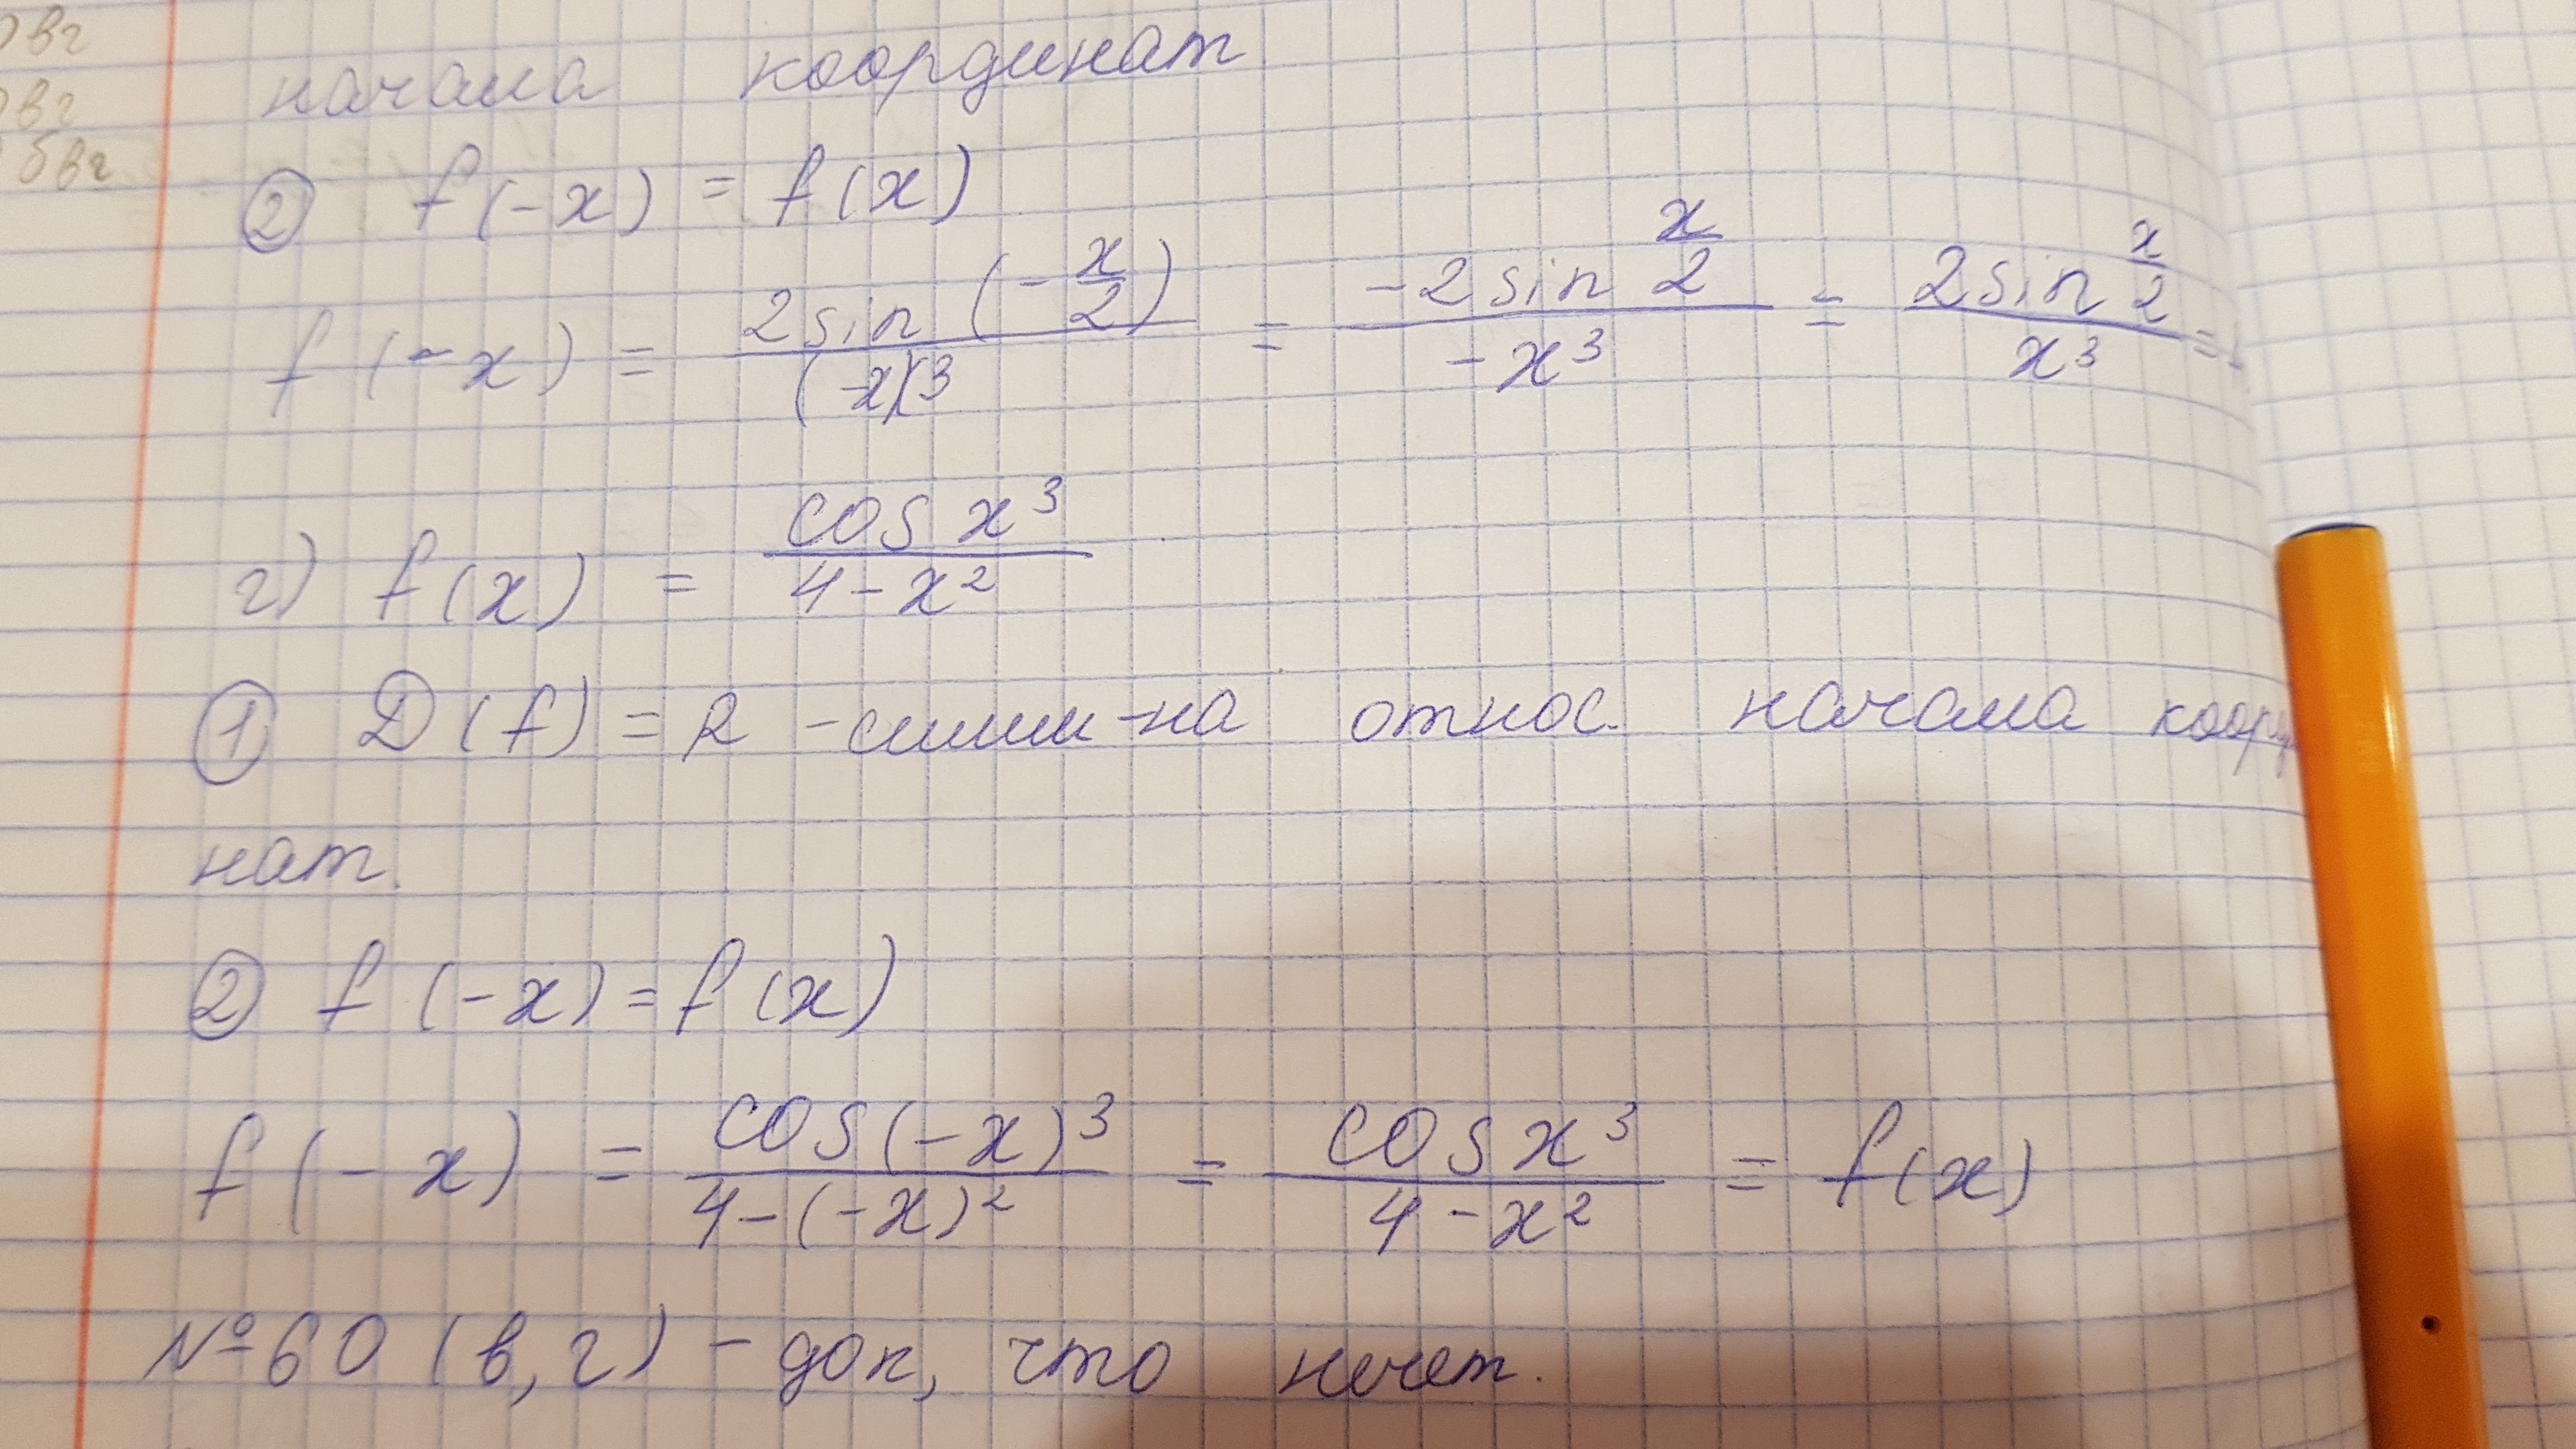 вг
вг
бвг
начала координат
② f(-x) = f(x)
f(-x) = 2sin(-x/2) / (-x)^3 = -2sin x/2 / -x^3 = 2sin x/2 / x^3 =
г) f(x) = cos x^3 / 4-x^2
① D(f) = R - симм-на относ. начала коор
нат.
② f(-x) = f(x)
f(-x) = cos(-x)^3 / 4-(-x)^2 = cos x^3 / 4-x^2 = f(x)
№60 (в, г) - док, что нечет.